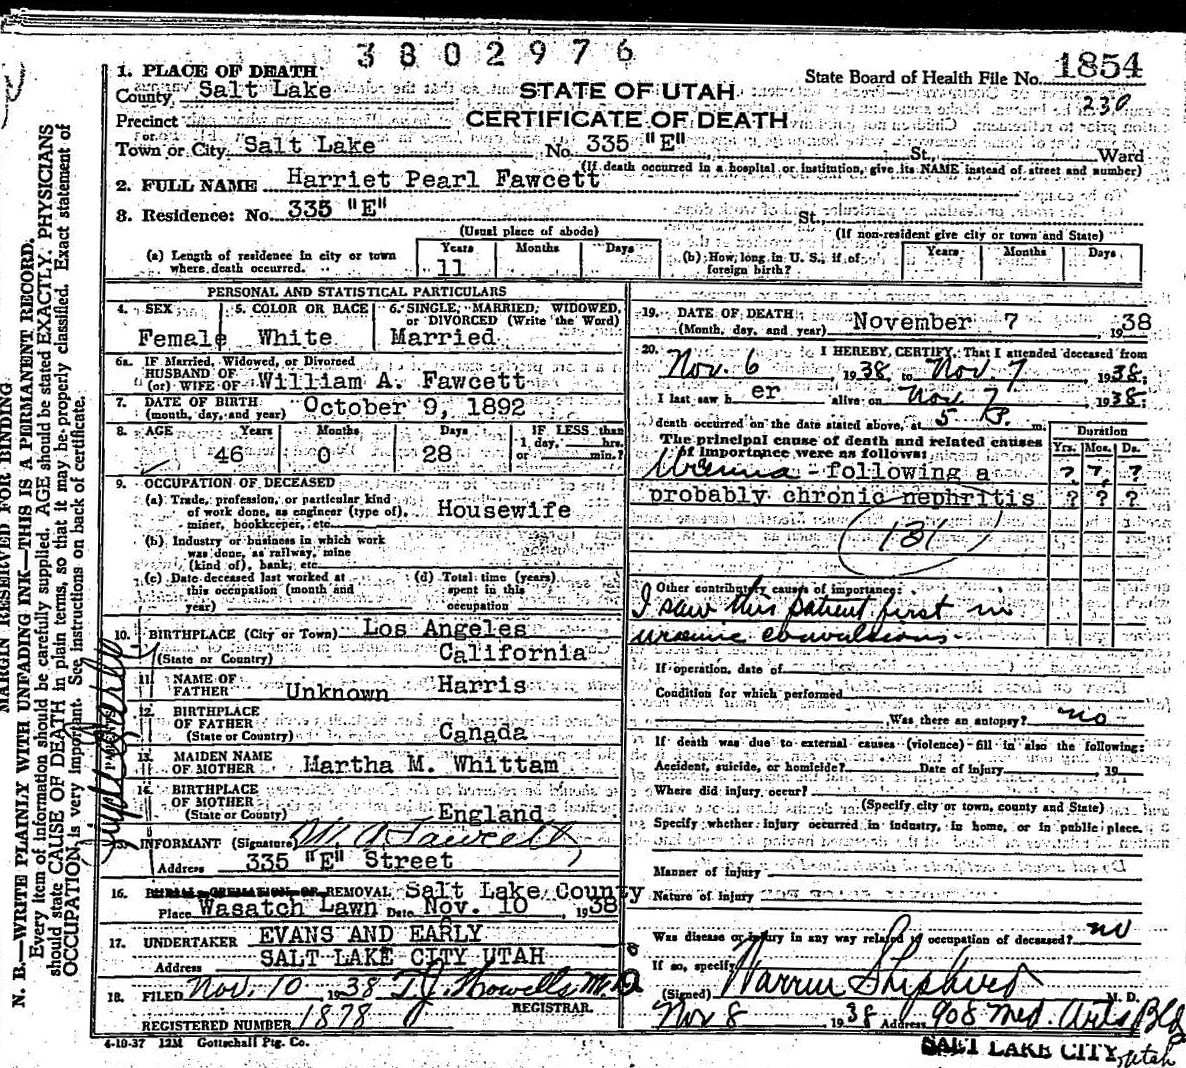 3802976
State Board of Health File No. 1854
230
STATE OF UTAH
CERTIFICATE OF DEATH
1. PLACE OF DEATH
County Salt Lake
Precinct
or
Town or City Salt Lake No. 335 "E" St. Ward
(If death occurred in a hospital or institution, give its NAME instead of street and number)
2. FULL NAME Harriet Pearl Fawcett
3. Residence: No. 335 "E" St.
(Usual place of abode) (If non-resident give city or town and State)
(a) Length of residence in city or town where death occurred. Years 11 Months Days
(b) How long in U. S., if of foreign birth? Years Months Days
PERSONAL AND STATISTICAL PARTICULARS
4. SEX Female
5. COLOR OR RACE White
6. SINGLE, MARRIED, WIDOWED, or DIVORCED (Write the Word) Married
6a. IF Married, Widowed, or Divorced
HUSBAND OF
(or) WIFE OF William A. Fawcett
7. DATE OF BIRTH
(month, day, and year) October 9, 1892
8. AGE Years 46 Months 0 Days 28 IF LESS than 1 day, hrs. or min.?
9. OCCUPATION OF DECEASED
(a) Trade, profession, or particular kind
of work done, as engineer (type of), Housewife
miner, bookkeeper, etc.
(b) Industry or business in which work
was done, as railway, mine
(kind of), bank, etc.
(c) Date deceased last worked at
this occupation (month and
year)
(d) Total time (years)
spent in this
occupation
10. BIRTHPLACE (City or Town) Los Angeles
(State or Country) California
11. NAME OF
FATHER Unknown Harris
12. BIRTHPLACE
OF FATHER
(State or Country) Canada
13. MAIDEN NAME
OF MOTHER Martha M. Whittam
14. BIRTHPLACE
OF MOTHER
(State or Country) England
INFORMANT (Signature) W. A. Fawcett
Address 335 "E" Street
16. BURIAL, CREMATION, OR REMOVAL Salt Lake County
Place Wasatch Lawn Date Nov. 10, 1938
17. UNDERTAKER EVANS AND EARLY
Address SALT LAKE CITY UTAH
18. FILED Nov. 10 1938 T. J. Howells M.D.
REGISTRAR.
REGISTERED NUMBER 1878
4-10-37 12M Gottschall Ptg. Co.
19. DATE OF DEATH
(Month, day, and year) November 7 1938
20. I HEREBY CERTIFY, That I attended deceased from
Nov. 6, 1938, to Nov. 7, 1938;
I last saw her alive on Nov 7, 1938;
death occurred on the date stated above, at 5 P. m.
The principal cause of death and related causes
of importance were as follows:
Duration
Yrs. Mos. Ds.
Uremia - following a ? ? ?
probably chronic nephritis ? ? ?
131
Other contributory causes of importance:
I saw this patient first in
uremic convulsions.
If operation, date of
Condition for which performed
Was there an autopsy? no
If death was due to external causes (violence) fill in also the following:
Accident, suicide, or homicide? Date of injury 19
Where did injury occur?
(Specify city or town, county and State)
Specify whether injury occurred in industry, in home, or in public place.
Manner of injury
Nature of injury
Was disease or injury in any way related to occupation of deceased? no
If so, specify
(Signed) Warren Shepherd M. D.
Nov 8, 1938 Address 908 Med. Arts Bldg
SALT LAKE CITY, Utah
MARGIN RESERVED FOR BINDING
N. B.—WRITE PLAINLY WITH UNFADING INK—THIS IS A PERMANENT RECORD.
Every item of information should be carefully supplied. AGE should be stated EXACTLY. PHYSICIANS
should state CAUSE OF DEATH in plain terms, so that it may be properly classified. Exact statement of
OCCUPATION is very important. See instructions on back of certificate.